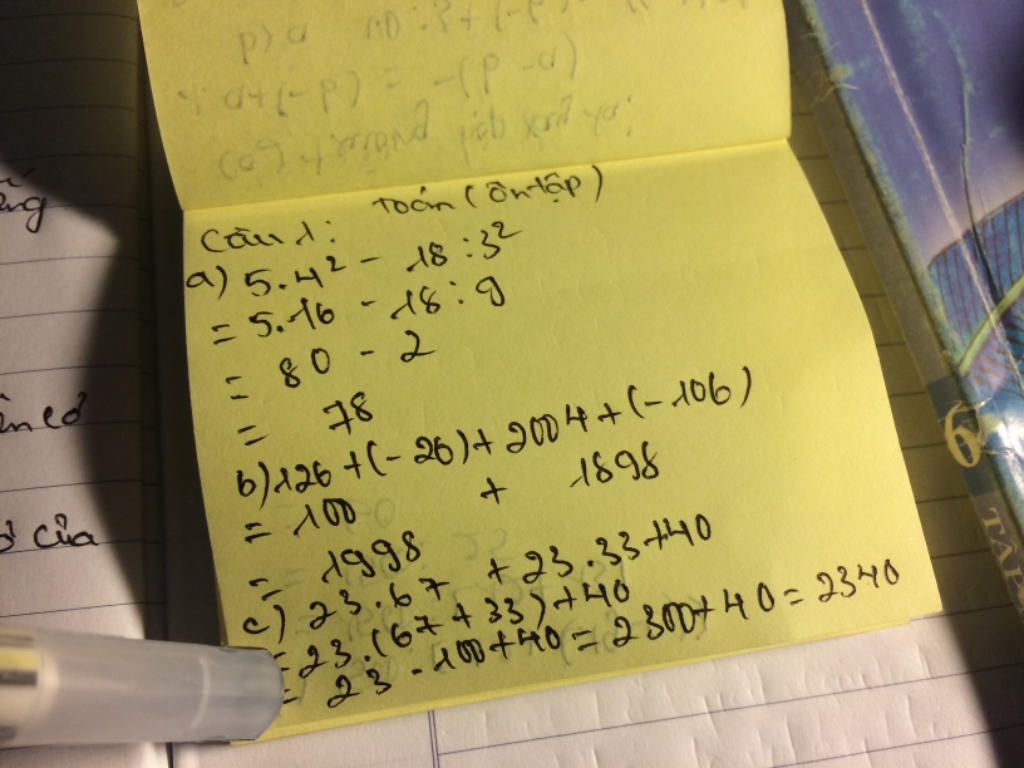 Toán (Ôn tập)
Câu 1:
a) 5.4² - 18:3²
= 5.16 - 18:9
= 80 - 2
= 78
b) 126 + (-26) + 2004 + (-106)
= 100 + 1898
= 1998
c) 23.67 + 23.33 + 40
= 23.(67 + 33) + 40
= 23.100 + 40 = 2300 + 40 = 2340
của
6
TẬP